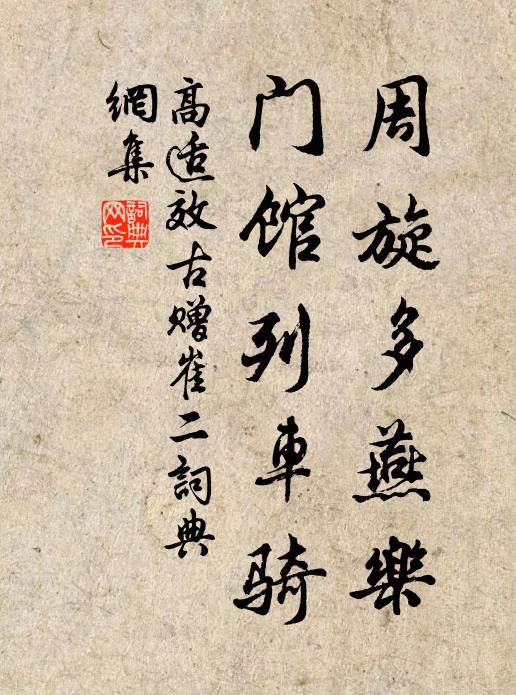 周旋多燕樂
门馆列車骑
高适效古赠崔二詞典
網集
詞典網印